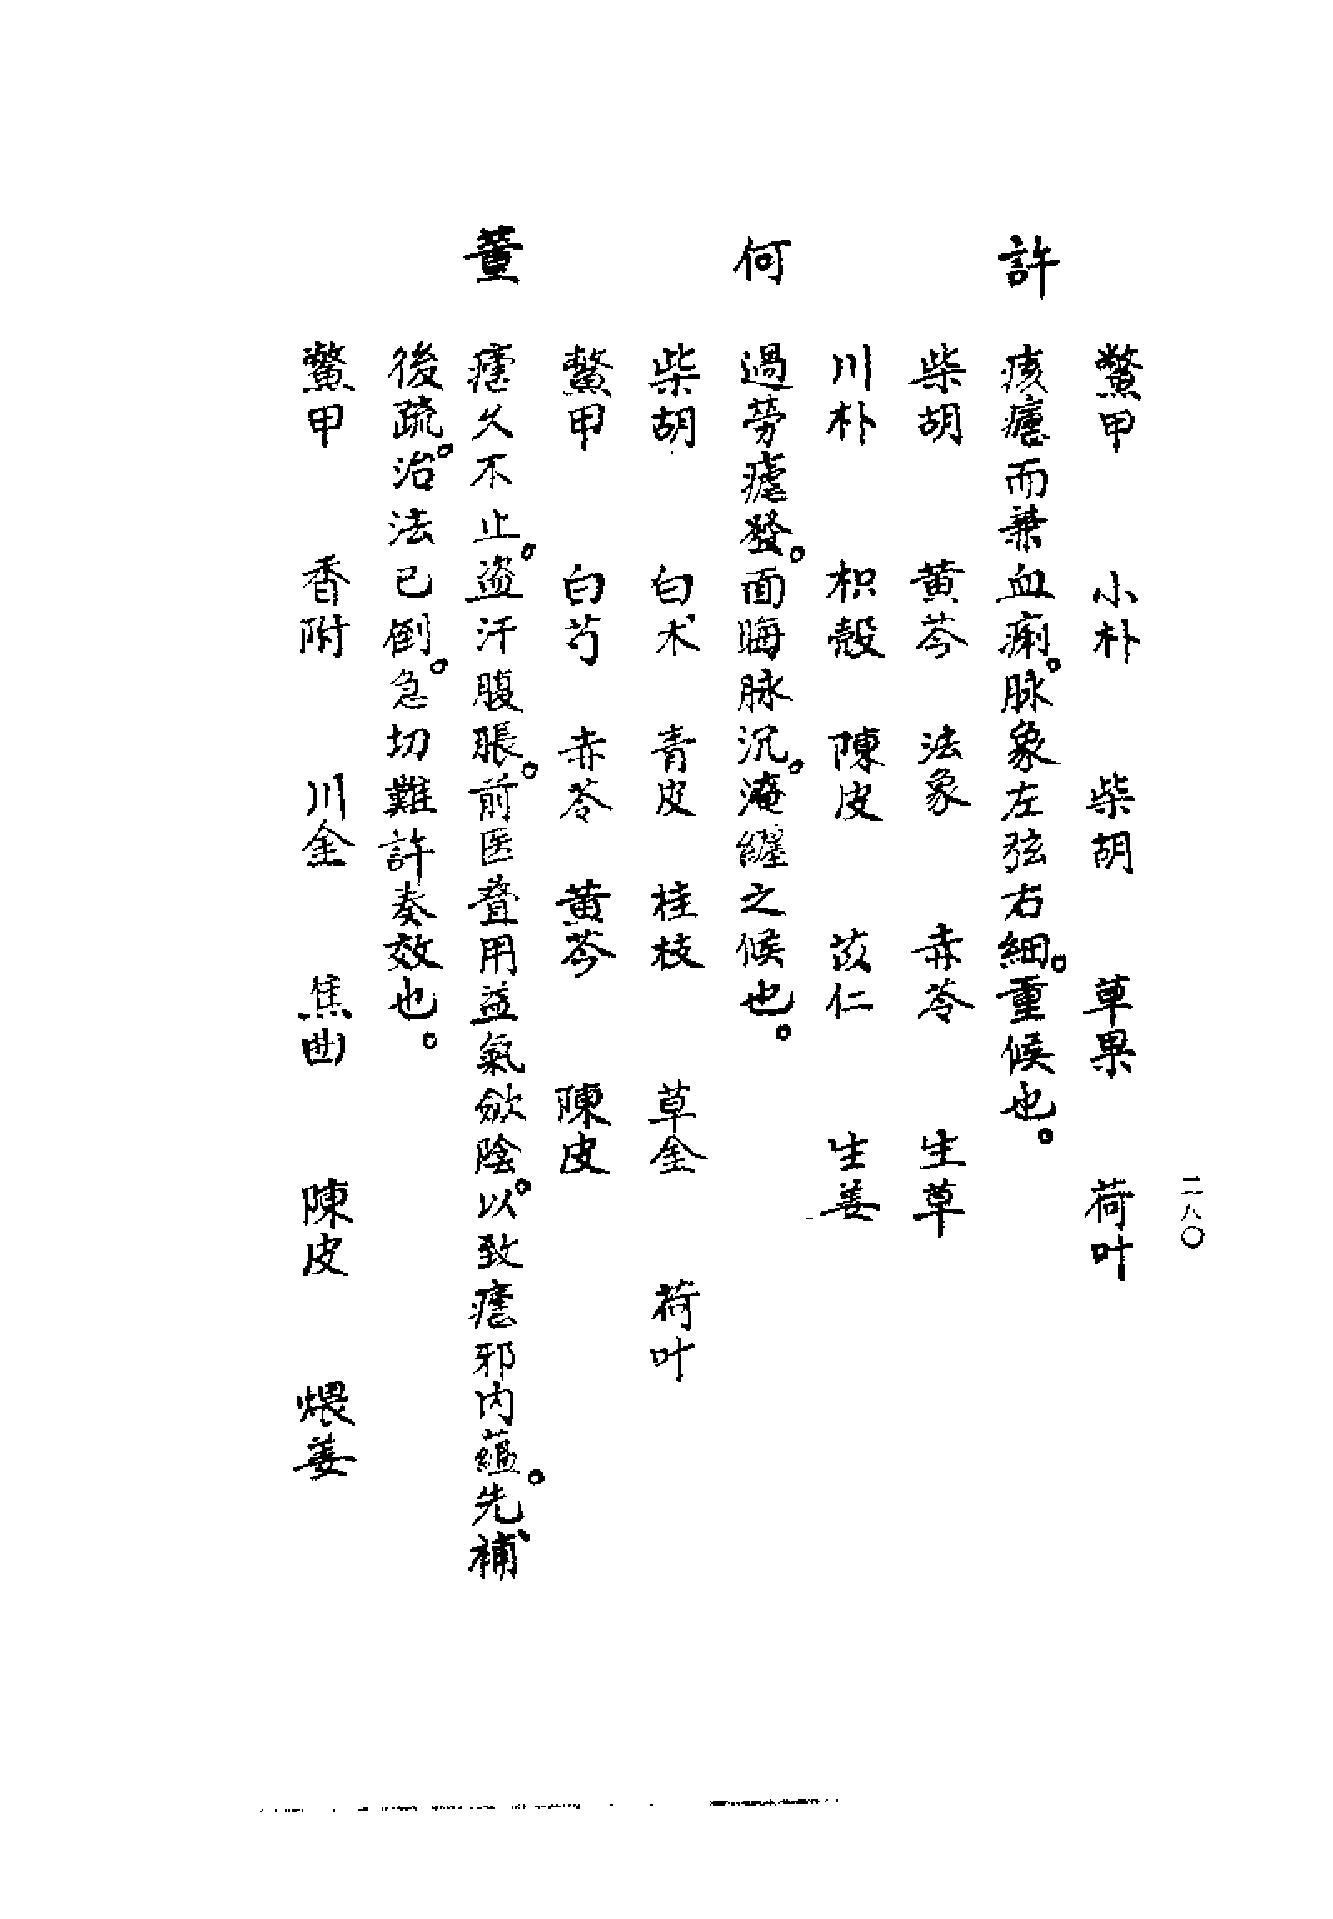 二八〇
鱉甲 小朴 柴胡 草果 荷叶
許 痎瘧而兼血痢。脉象左弦右細。重候也。
柴胡 黄芩 法象 赤苓 生草
川朴 枳殻 陳皮 苡仁 生姜
何 過勞瘧發。面晦脉沉。淹纏之候也。
柴胡 白术 青皮 桂枝 草金 荷叶
鱉甲 白芍 赤苓 黄芩 陳皮
董 瘧久不止。盗汗腹脹。前医叠用益氣歛陰。以致瘧邪内蘊。先補
後疏。治法已倒。急切難許奏效也。
鱉甲 香附 川金 焦曲 陳皮 煨姜